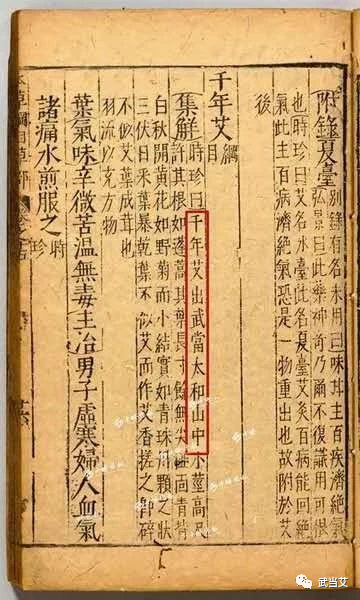 附錄夏臺
別錄有名未用曰味甘主百疾濟絕氣
弘景曰此藥神奇乃爾不復識用可恨
也時珍曰艾名冰臺此名夏臺艾灸百病能回絕
氣此主百病濟絕氣恐是一物重出也故附於艾
後
千年艾綱目
集解
時珍曰千年艾出武當太和山中小莖高尺
許其根如蓬蒿其葉長寸餘無尖椏面青背
白秋開黃花如野菊而小結實如青珠丹顆之狀
三伏日采葉暴乾葉不似艾而作艾香搓之即碎
不似艾葉成茸也
羽流以充方物
葉氣味辛微苦溫無毒主治男子虛寒婦人血氣
諸痛水煎服之時珍
草綱目草部
武当艾